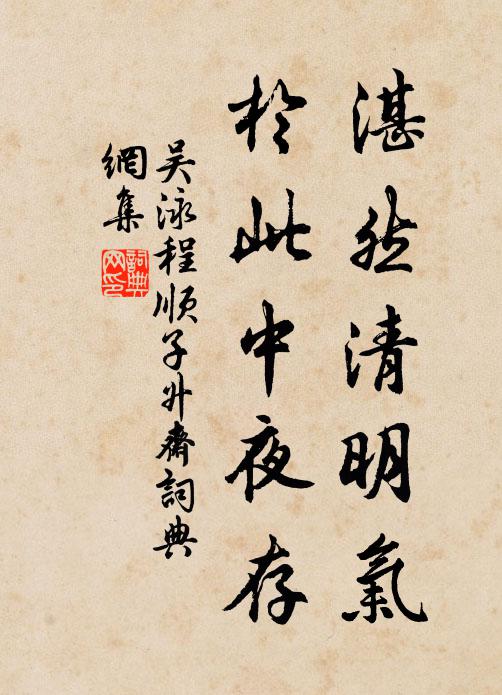 湛然清明氣
於此中夜存
吳泳程順子外齋詞典
網集
詞典
网印